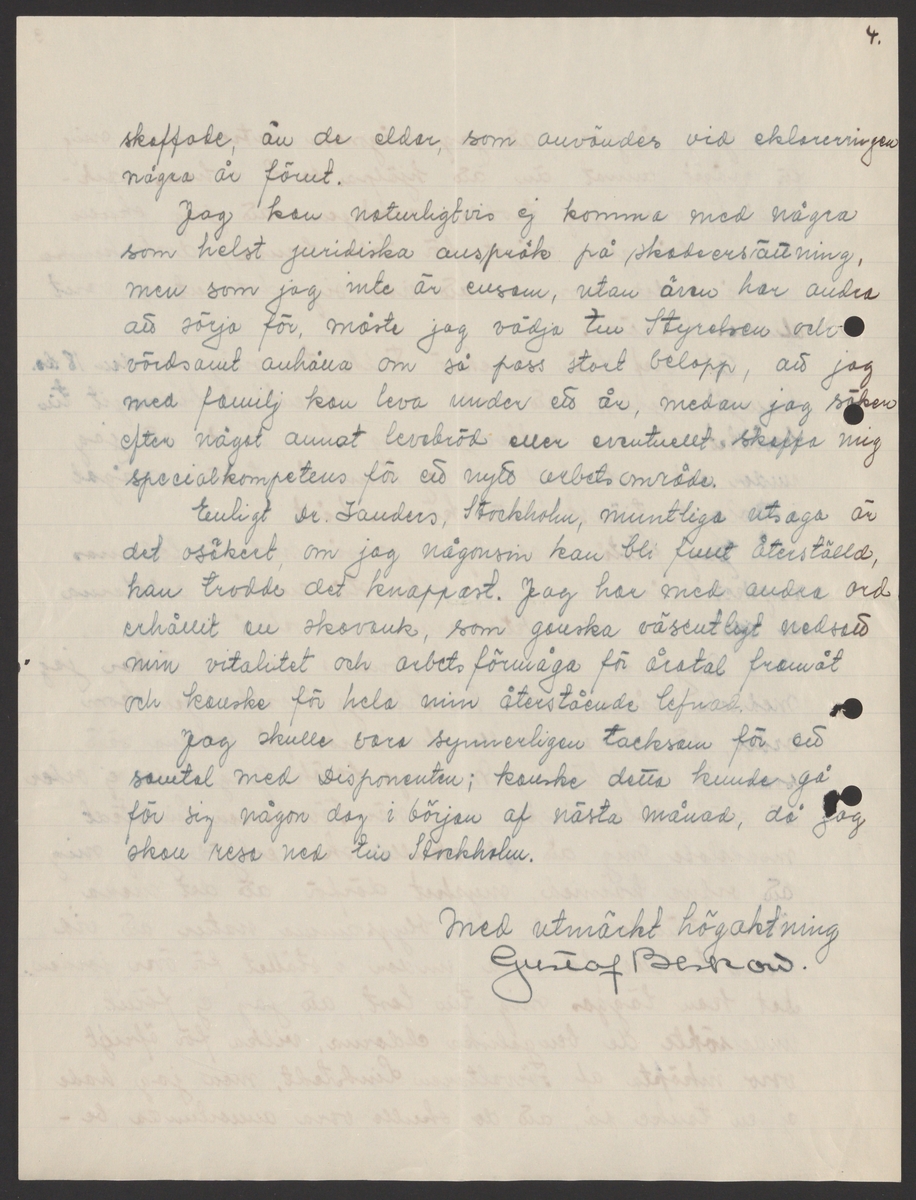 4.
skaffade, än de eldar, som användes vid eklareringen
några år förut.
Jag kan naturligtvis ej komma med några
som helst juridiska anspråk på skadeersättning,
men som jag inte är ensam, utan även har andra
att sörja för, måste jag vädja till Styrelsen och
vördsamt anhålla om så pass stort belopp, att jag
med familj kan leva under ett år, medan jag söker
efter något annat levebröd eller eventuellt skaffa mig
specialkompetens för ett nytt arbetsområde.
Enligt Dr. Landers, Stockholm, muntliga utsaga är
det osäkert, om jag någonsin kan bli fullt återställd,
han trodde det knappast. Jag har med andra ord
erhållit en skavank, som ganska väsentligt nedsatt
min vitalitet och arbetsförmåga för åratal framåt
och kanske för hela min återstående lefnad.
Jag skulle vara synnerligen tacksam för ett
samtal med Disponenten; kanske detta kunde gå
för sig någon dag i början af nästa månad, då jag
skall resa ned till Stockholm.
Med utmärkt högaktning
Gustaf Beskow.